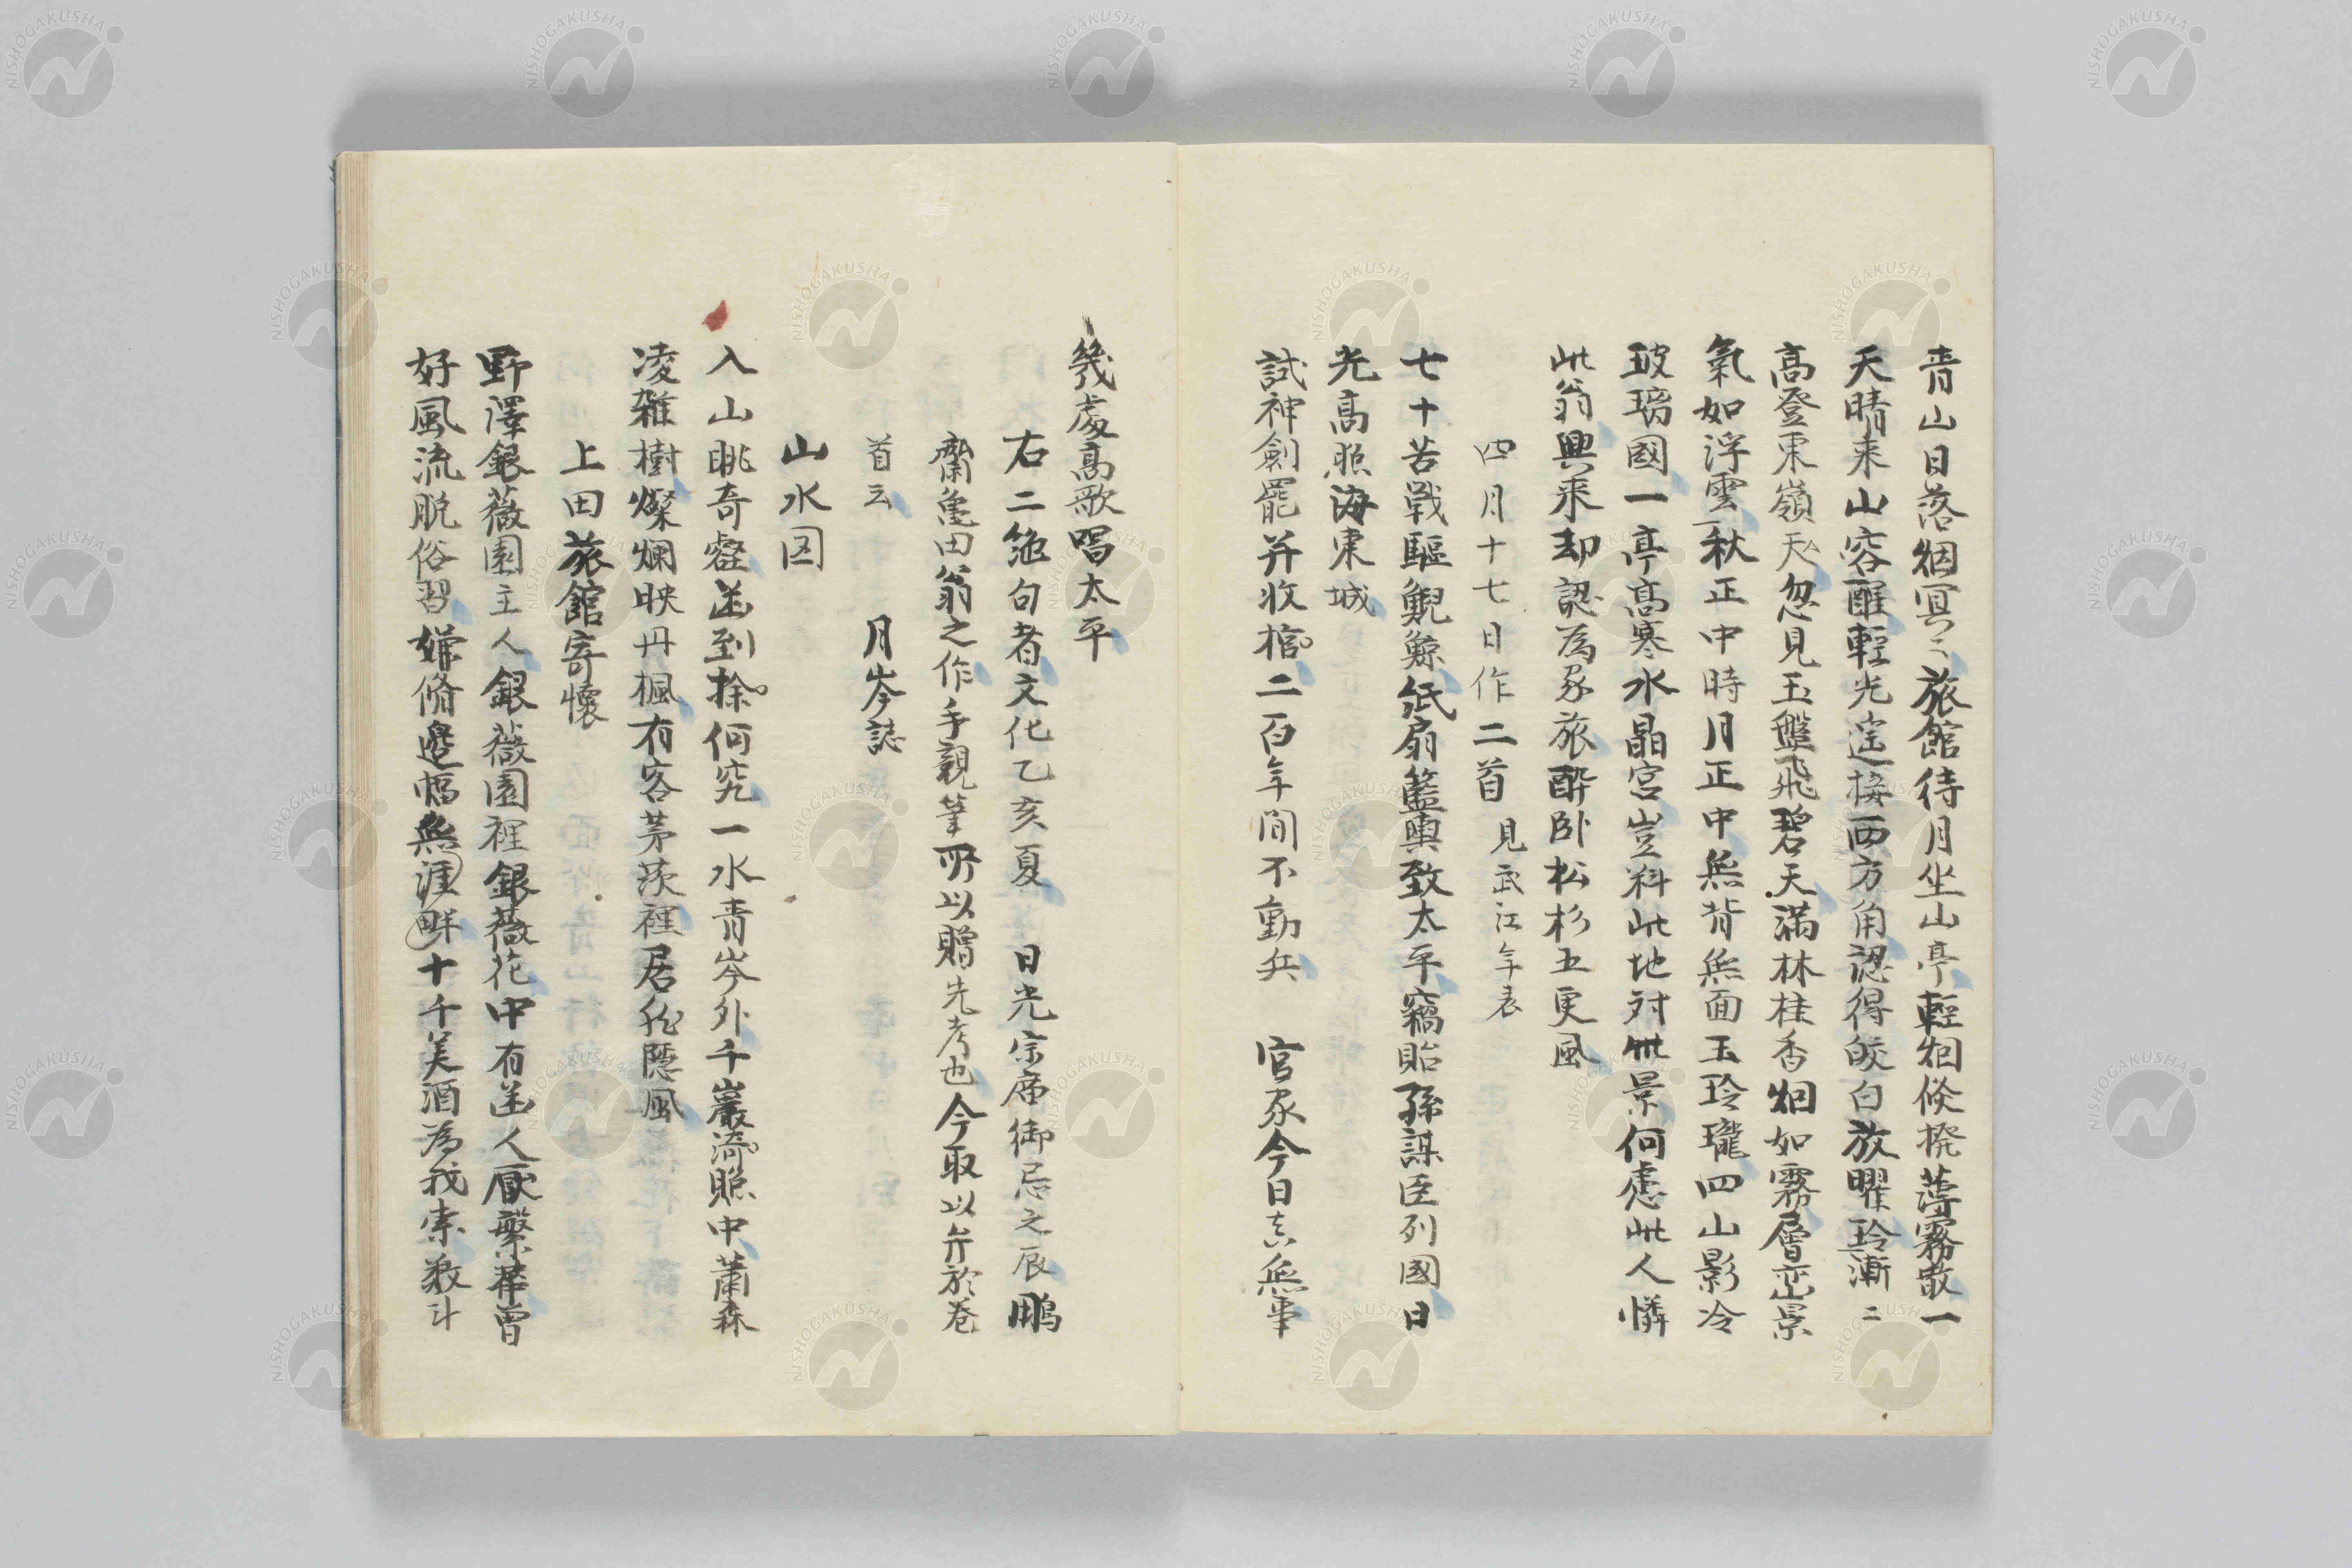 青山日落烟冥〻旅館待月坐山亭輕烟倏撥薄霧散一
天晴来山容醒輕光遙擬西方角認得皎白放曜玲漸〻
高登東嶺天忽見玉盤飛碧天満林桂香烟如霧層巒景
氣如浮雲秋正中時月正中無背無面玉玲瓏四山影冷
玻璃國一亭髙寒水晶宮豈料此地対此景何慮此人憐
此翁興乘却認為家旅酔卧松杉五更風
四月十七日作二首 見武江年表
七十苦戦驅鯢鯨紙扇籃輿致太平竊貽孫謀臣列國日
光髙照海東城
試神劍罷并收棺二百年間不動兵 官家今日真無事
幾處髙歌唱太平
右二絶句者文化乙亥夏 日光宗廟御忌之辰鵬
齋亀田翁之作手親筆所以贈先考也今取以弁於巻
首云 月岑誌
山水図
入山眺奇壑送到捺何究一水青岑外千巖漪照中蕭森
凌雑樹燦爛映丹楓有客茅茨裡居然隠風
上田旅館寄懐
野澤銀薇園主人銀薇園裡銀薇花中有送人厭繁華曽
好風流脱俗習嫌脩邉幅無涯畔十千美酒為我索數斗
NISHOGAKUSHA